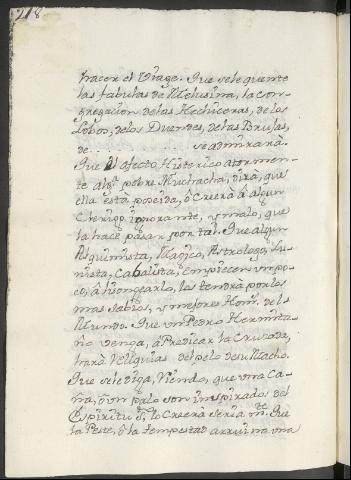 218
hacer el Viage. Que se le quente
las fabulas de Melusina, la Con-
gregacion de las Hechiceras, de los
Lobos, de los Duendes, de las Brujas,
de se admirarà.
Que el afecto Histerico atormen-
te alg.ª pobre Muchacha, dirà, que
ella esta poseida, ò Creerà à algun
Clerigo ignorante, y malo, que
la hace pasar por tal. Que algun
Alquimista, Magico, Astrologo,
Cabalista, empiecen un po-
co, à lisongearlo, los tendrà por los
mas Sabios, y mejores Hom.s del
Mundo. Que un Pedro Hermita-
ño venga, à Predicar la Cruzada,
harà Reliquias del pelo de su Macho.
Que se le diga, Viendo, que una Ca-
ña, ò un palo son inspirados del
Espiritu S.to lo Creerà seria m.te Que
la Peste, ò la tempestad arruine una